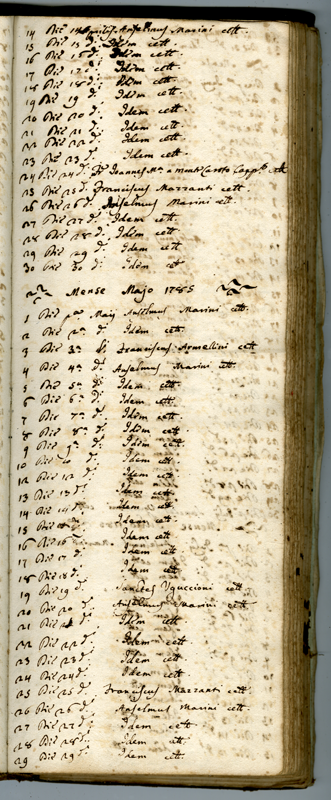 14 Die 14 Aprilis Anselmus Marini cett.
15 Die 15 d. Idem cett.
16 Die 16 d. Idem cett.
17 Die 17 d. Idem cett.
18 Die 18 d. Idem cett.
19 Die 19 d. Idem cett.
20 Die 20 d. Idem cett.
21 Die 21 d. Idem cett.
22 Die 22 d. Idem cett.
23 Die 23 d. Idem cett.
24 Die 24 d. Joannes Mª a Monte Caroto Capp. cett.
25 Die 25 d. Franciscus Mazzanti cett.
26 Die 26 d. Anselmus Marini cett.
27 Die 27 d. Idem cett.
28 Die 28 d. Idem cett.
29 Die 29 d. Idem cett.
30 Die 30 d. Idem cett.
Mense Majo 1785
1 Die pma Maij Anselmus Marini cett.
2 Die 2ª d. Idem cett.
3 Die 3ª d. Franciscus Armellini cett.
4 Die 4ª d. Anselmus Marini cett.
5 Die 5ª d. Idem cett.
6 Die 6ª d. Idem cett.
7 Die 7ª d. Idem cett.
8 Die 8ª d. Idem cett.
9 Die 9ª d. Idem cett.
10 Die d. Idem cett.
12 Die 12 d. Idem cett.
13 Die 13 d. Idem cett.
14 Die 14 d. Idem cett.
15 Die d. Idem cett.
16 Die 16 d. Idem cett.
17 Die 17 d. Idem cett.
18 Die 18 d. Idem cett.
19 Die 19 d. Santes Uguccioni cett.
20 Die 20 d. Anselmus Marini cett.
21 Die d. Idem cett.
22 Die 22 d. Idem cett.
23 Die 23 d. Idem cett.
24 Die 24 d. Idem cett.
25 Die 25 d. Franciscus Mazzanti cett.
26 Die 26 d. Anselmus Marini cett.
27 Die 27 d. Idem cett.
28 Die 28 d. Idem cett.
29 Die 29 d. Idem cett.